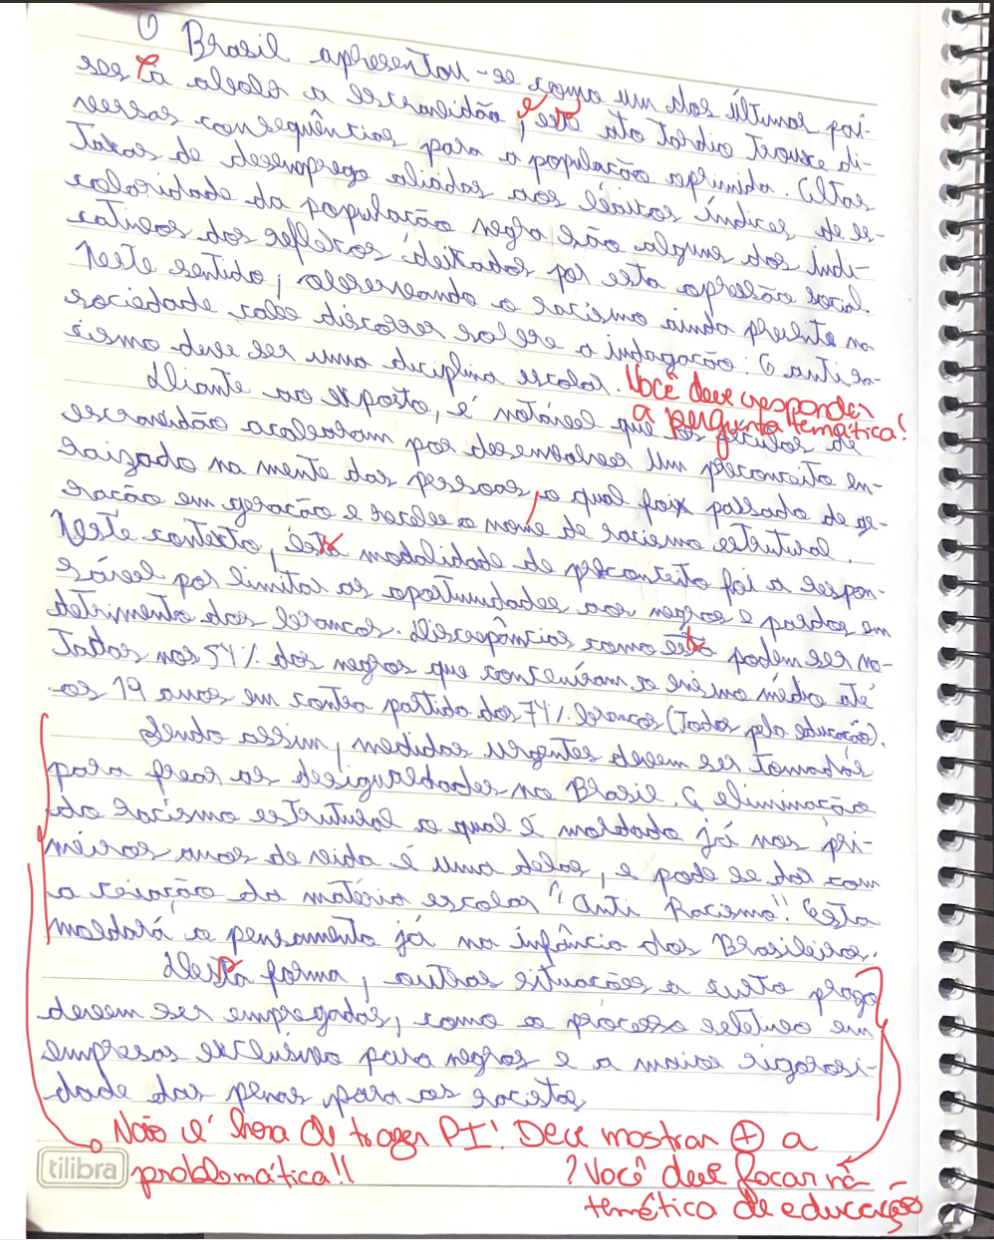 O Brasil apresentou-se como um dos últimos paí-
ses à abolir a escravidão, este ato tardio trouxe di-
versas consequências para a população oprimida. Altas
taxas de desemprego aliadas aos baixos índices de es-
colaridade da população negra são alguns dos indi-
cativos dos reflexos deixados por esta opressão social.
Neste sentido, observando o racismo ainda presente na
sociedade cabe discorrer sobre a indagação: O antira-
cismo deve ser uma diciplina escolar.
Você deve responder
a pergunta temática!
Diante ao exposto, é notável que os séculos de
escravidão acabaram por desenvolver um preconceito en-
raizado na mente das pessoas, o qual foi passado de ge-
ração em geração e recebe o nome de racismo estrutural.
Neste contexto, esta modalidade de preconceito foi a respon-
sável por limitar as oportunidades aos negros e pardos em
detrimento dos brancos. Discrepâncias como esta podem ser no-
tadas nos 54% dos negros que concluíram o ensino médio até
os 19 anos em contra partida dos 74% brancos (Todos pela educação).
Sendo assim, medidas urgentes devem ser tomadas
para frear as desigualdades no Brasil. A eliminação
do racismo estrutural o qual é moldado já nos pri-
meiros anos de vida é uma delas, e pode se dar com
a criação da matéria escolar "Anti Racismo". Esta
moldará o pensamento já na infância dos Brasileiros.
Desta forma, outras situações a curto prazo
devem ser empregadas, como o processo seletivo em
empresas exclusivo para negros e a maior rigorosi-
dade das penas para os racistas
Não é hora de trazer PI! Deve mostrar + a
problemática!!
? Você deve focar na
temática de educação
tilibra